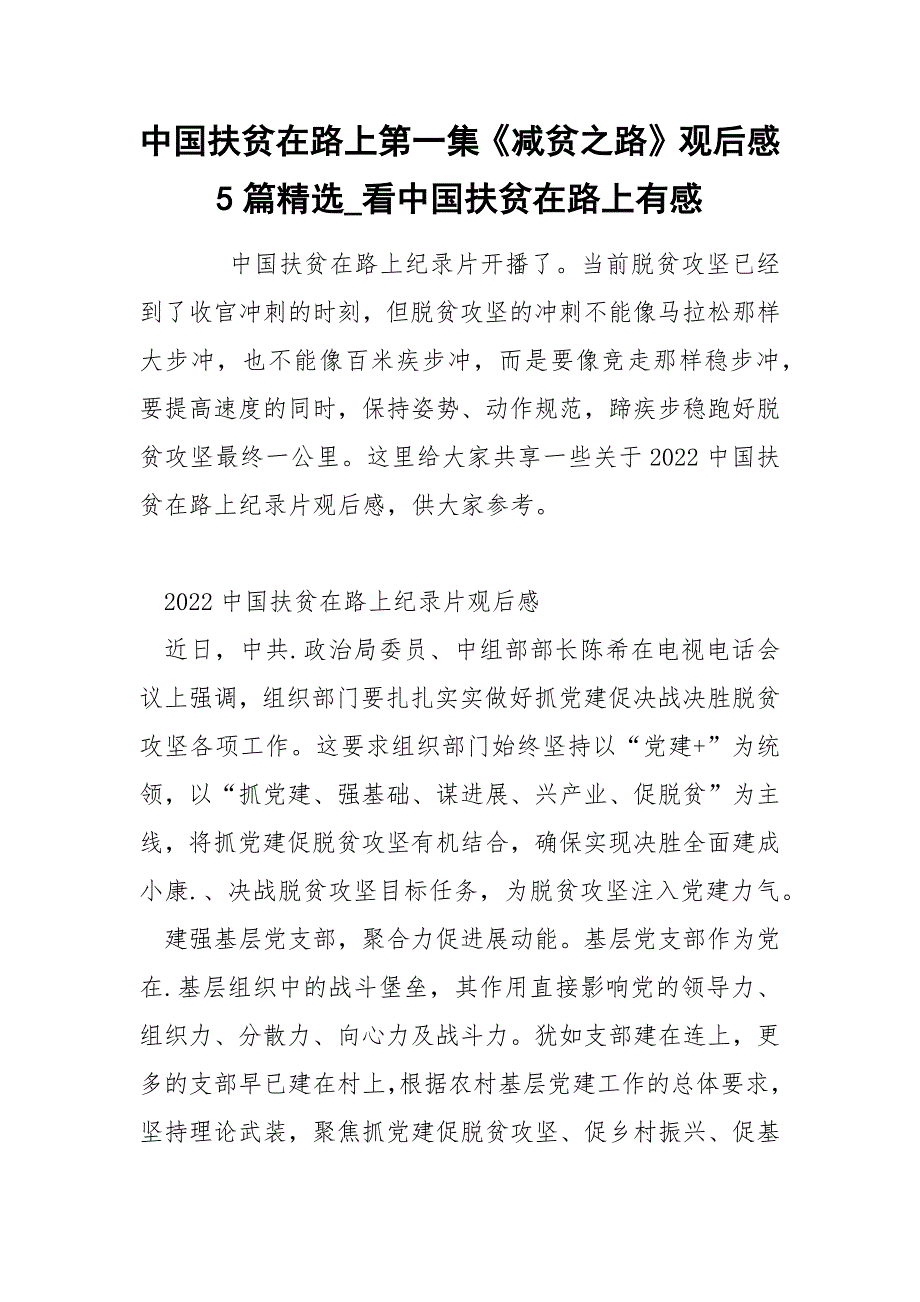 中国扶贫在路上第一集《减贫之路》观后感
5 篇精选_看中国扶贫在路上有感
中国扶贫在路上纪录片开播了。当前脱贫攻坚已经
到了收官冲刺的时刻，但脱贫攻坚的冲刺不能像马拉松那样
大步冲，也不能像百米疾步冲，而是要像竞走那样稳步冲，
要提高速度的同时，保持姿势、动作规范，蹄疾步稳跑好脱
贫攻坚最终一公里。这里给大家共享一些关于 2022 中国扶
贫在路上纪录片观后感，供大家参考。
2022 中国扶贫在路上纪录片观后感
近日，中共.政治局委员、中组部部长陈希在电视电话会
议上强调，组织部门要扎扎实实做好抓党建促决战决胜脱贫
攻坚各项工作。这要求组织部门始终坚持以“党建+”为统
领，以“抓党建、强基础、谋进展、兴产业、促脱贫”为主
线，将抓党建促脱贫攻坚有机结合，确保实现决胜全面建成
小康.、决战脱贫攻坚目标任务，为脱贫攻坚注入党建力气。
建强基层党支部，聚合力促进展动能。基层党支部作为党
在.基层组织中的战斗堡垒，其作用直接影响党的领导力、
组织力、分散力、向心力及战斗力。犹如支部建在连上，更
多的支部早已建在村上，根据农村基层党建工作的总体要求，
坚持理论武装，聚焦抓党建促脱贫攻坚、促乡村振兴、促基